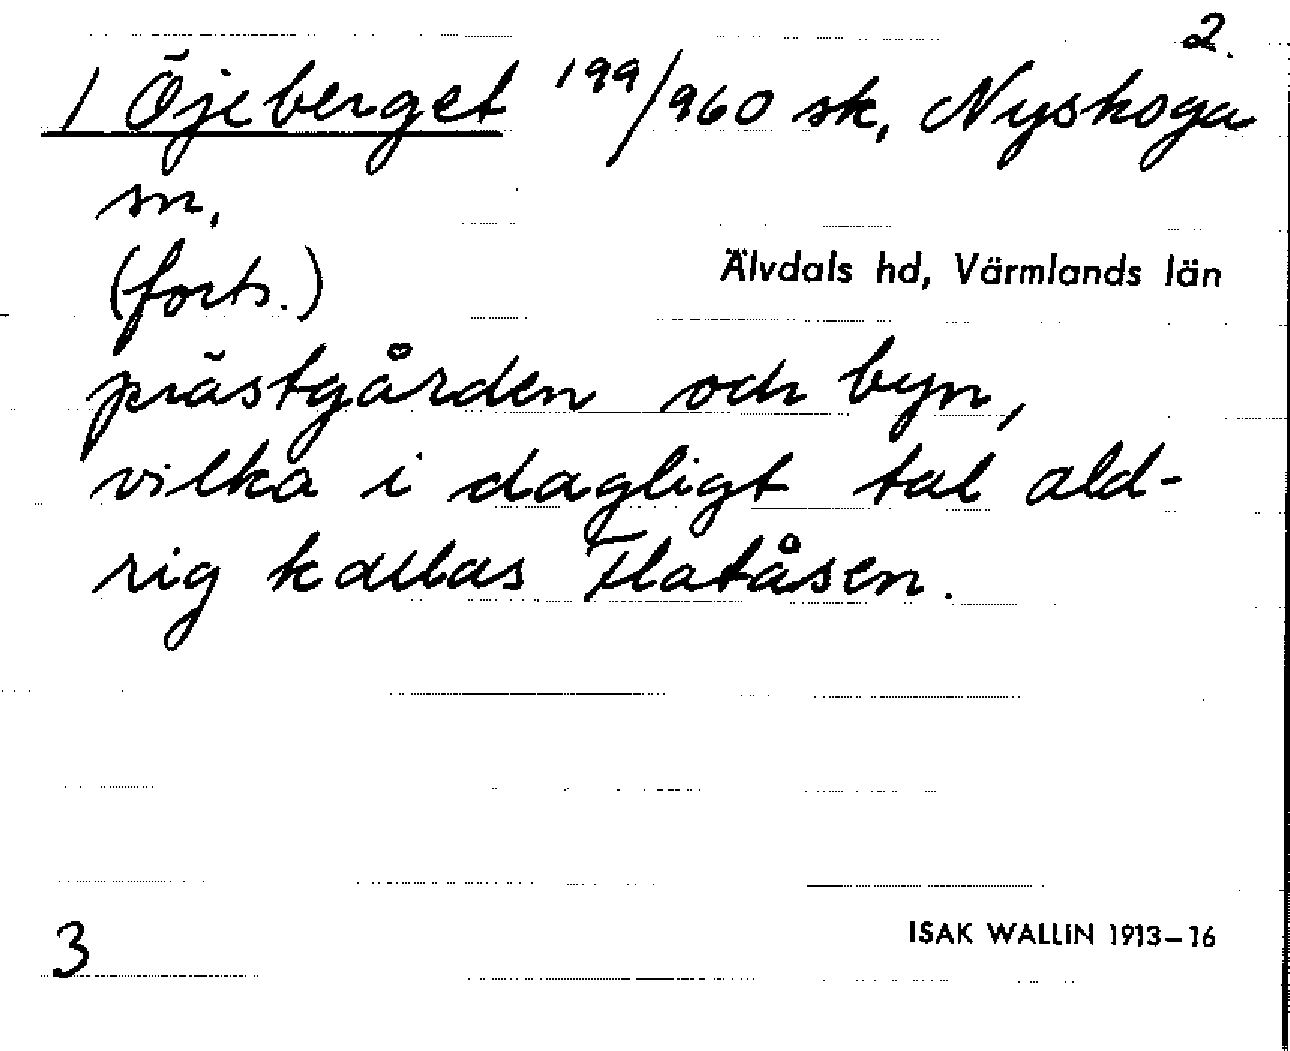 2.
1 Öjeberget 199/960 sk, Nyskoga
sn.
(forts.)
Älvdals hd, Värmlands län
prästgården och byn,
vilka i dagligt tal ald-
rig kallas Flatåsen.
3
ISAK WALLIN 1913–16